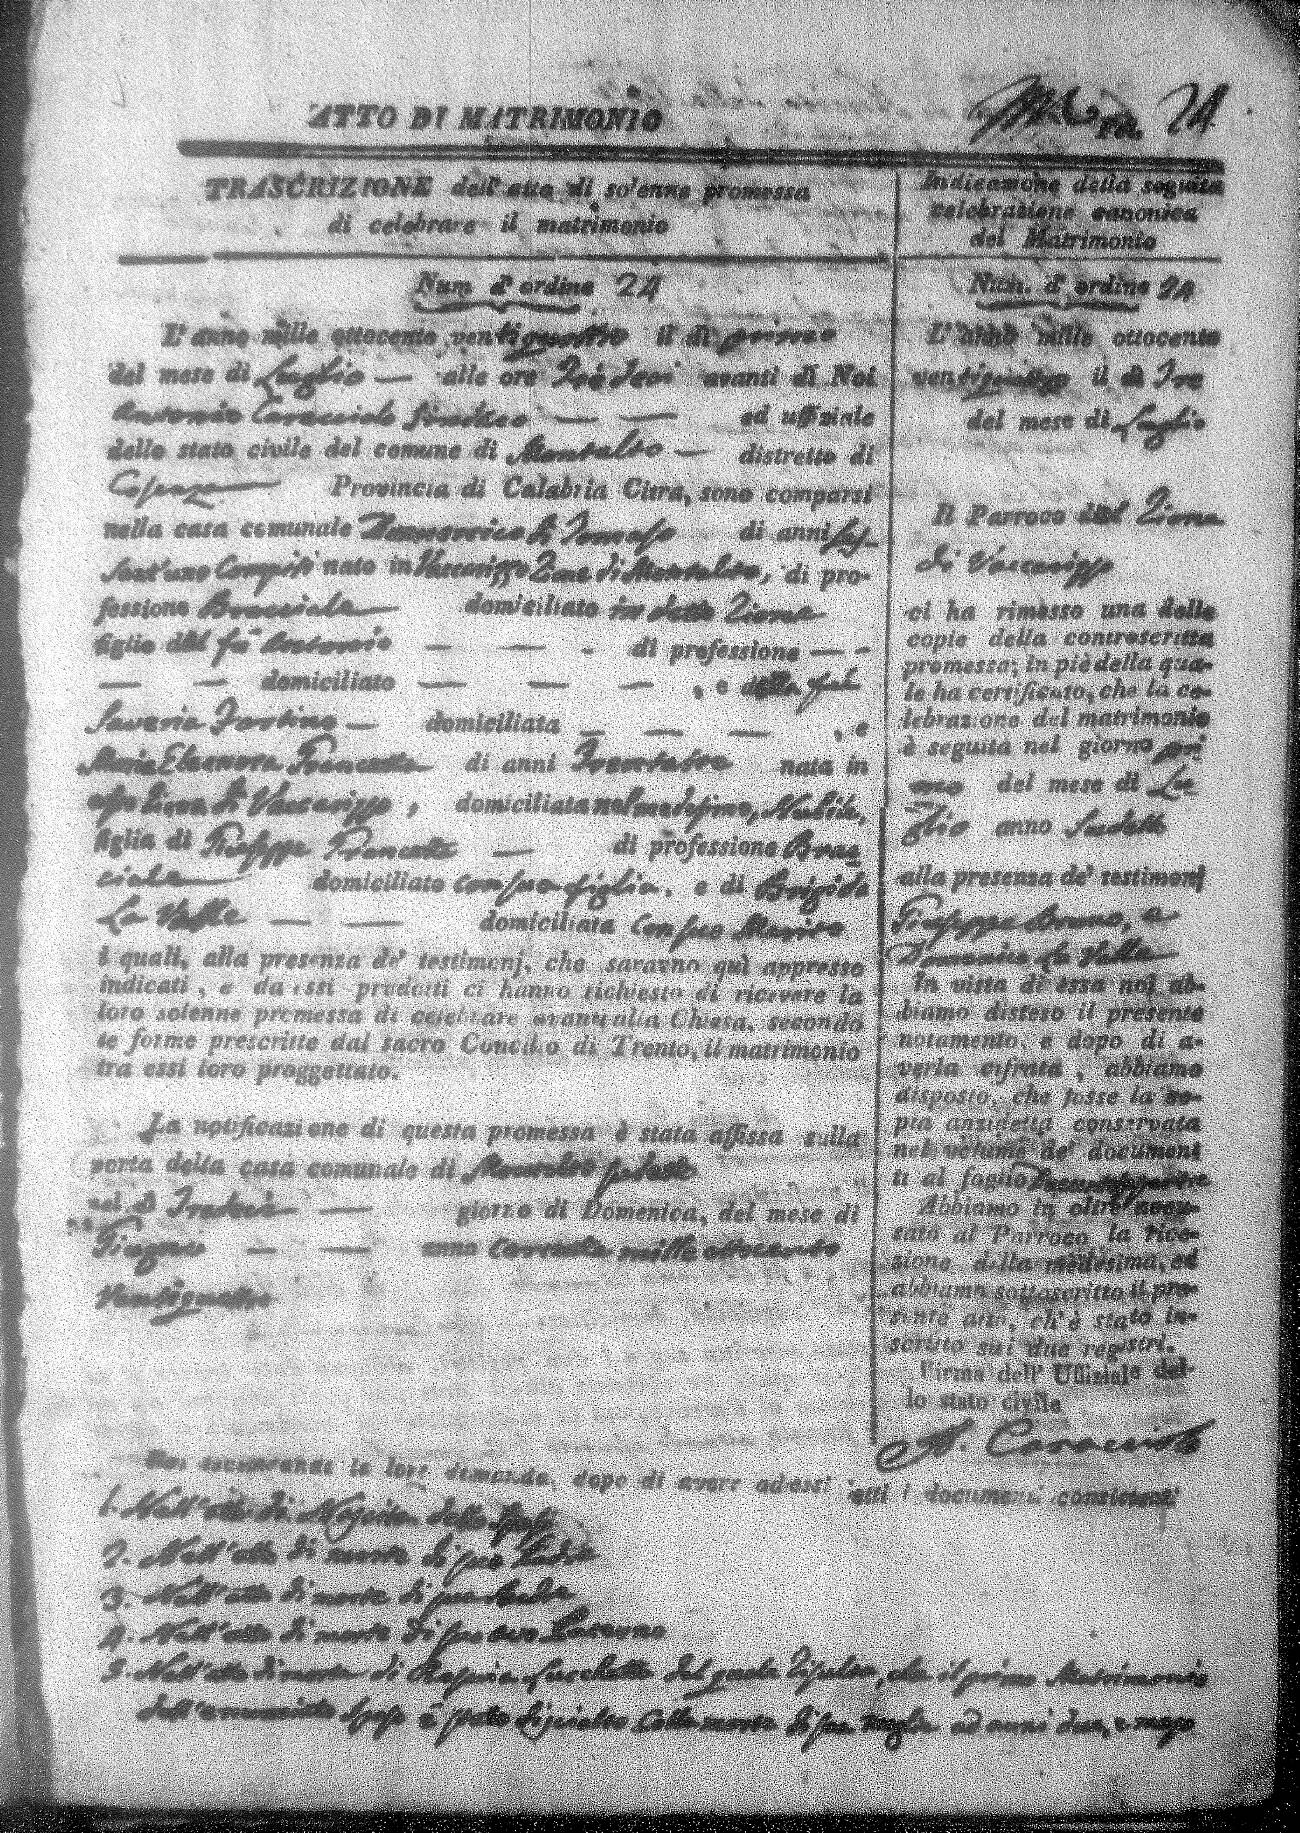 ATTO DI MATRIMONIO
24
TRASCRIZIONE dell'atto di solenne promessa
di celebrare il matrimonio
Num d'ordine 24
L'anno mille ottocento ventiquattro il di primo
del mese di Luglio — alle ore avanti di Noi
Antonio Caracciolo Sindaco — — ed uffiziale
dello stato civile del comune di Montalto — distretto di
Cosenza Provincia di Calabria Citra, sono comparsi
nella casa comunale di Tomaso di anni Ses-
sant'uno compiti nato in Vaccarizzo di Montalto, di pro-
fessione Bracciale domiciliato in detto
figlio del fu Antonio — — - di professione — -
— — domiciliato — — — , e della fu
Saveria Fortino — domiciliata — — — , e
Maria Eleonora di anni Trentatre nata in
esso di Vaccarizzo, domiciliata nel medesimo, Nubile,
figlia di Giuseppe — di professione Brac
ciale domiciliato con sua figlia, e di Brigida
La Valle — — domiciliata con suo Marito
i quali, alla presenza de' testimonj, che saranno quì appresso
indicati, e da essi prodotti ci hanno richiesto di ricevere la
loro solenne promessa di celebrare avanti alla Chiesa, secondo
le forme prescritte dal sacro Concilio di Trento, il matrimonio
tra essi loro proggettato.
La notificazione di questa promessa è stata affissa sulla
porta della casa comunale di Montalto
nel di Tredici — giorno di Domenica, del mese di
Giugno — — anno corrente mille ottocento
ventiquattro
Indicazione della seguita
celebrazione canonica
del Matrimonio
Num. d'ordine 24
L'anno mille ottocento
ventiquattro il di Tre
del mese di Luglio
Il Parroco del
di Vaccarizzo
ci ha rimesso una delle
copie della controscritta
promessa; in piè della qua-
le ha certificato, che la ce-
lebrazione del matrimonio
è seguita nel giorno pri
mo del mese di Lu
glio anno sudetto
alla presenza de' testimonj
Giuseppe Bruno, e
Domenico La Valle
In vista di essa noi ab-
biamo disteso il presente
notamento, e dopo di a-
verla cifrata, abbiamo
disposto, che fosse la co-
pia anzidetta conservata
nel volume de' documen-
ti al foglio
Abbiamo in oltre accu-
sato al Parroco la rice-
zione della medesima, ed
abbiamo sottoscritto il pre-
sente atto, ch'è stato in-
scritto sui due registri.
Firma dell' Uffiziale del-
lo stato civile
A. Caracciolo
Noi secondando la loro dimanda, dopo di avere ad essi letti i documenti consistenti
1. Nell'atto di Nascita dello sposo
2. Nell'atto di morte di suo Padre
3. Nell'atto di morte di sua Madre
4. Nell'atto di morte di suo avo Paterno
5. Nell'atto di morte di del quale risulta, che il primo Matrimonio
dell'enunciato sposo è stato disciolto colla morte di sua moglie ad anni due, e mezzo